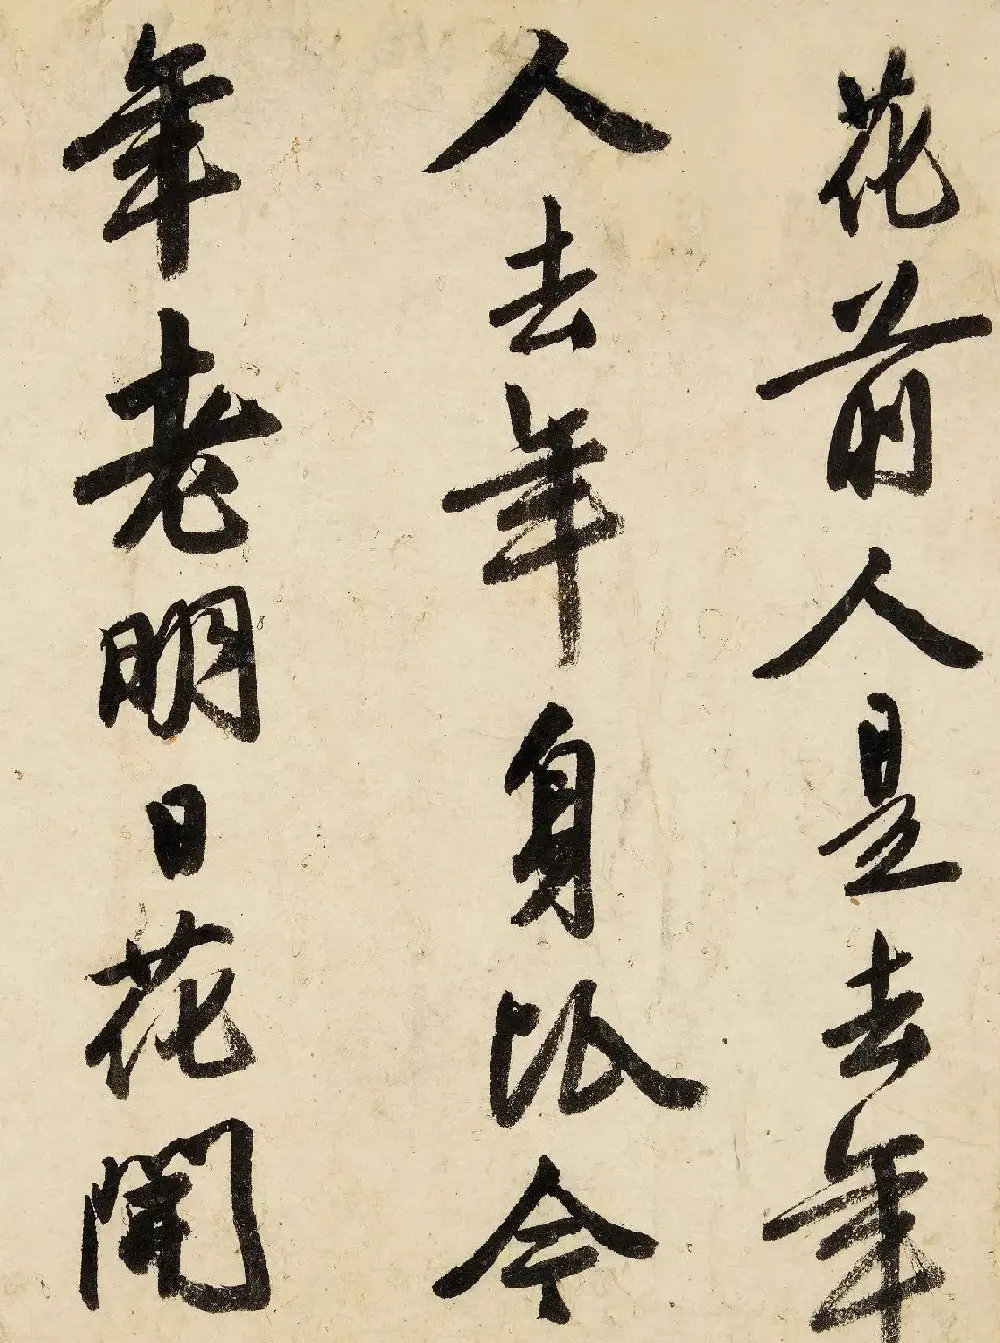 花前人是去年
人去年身比今
年老明日花開